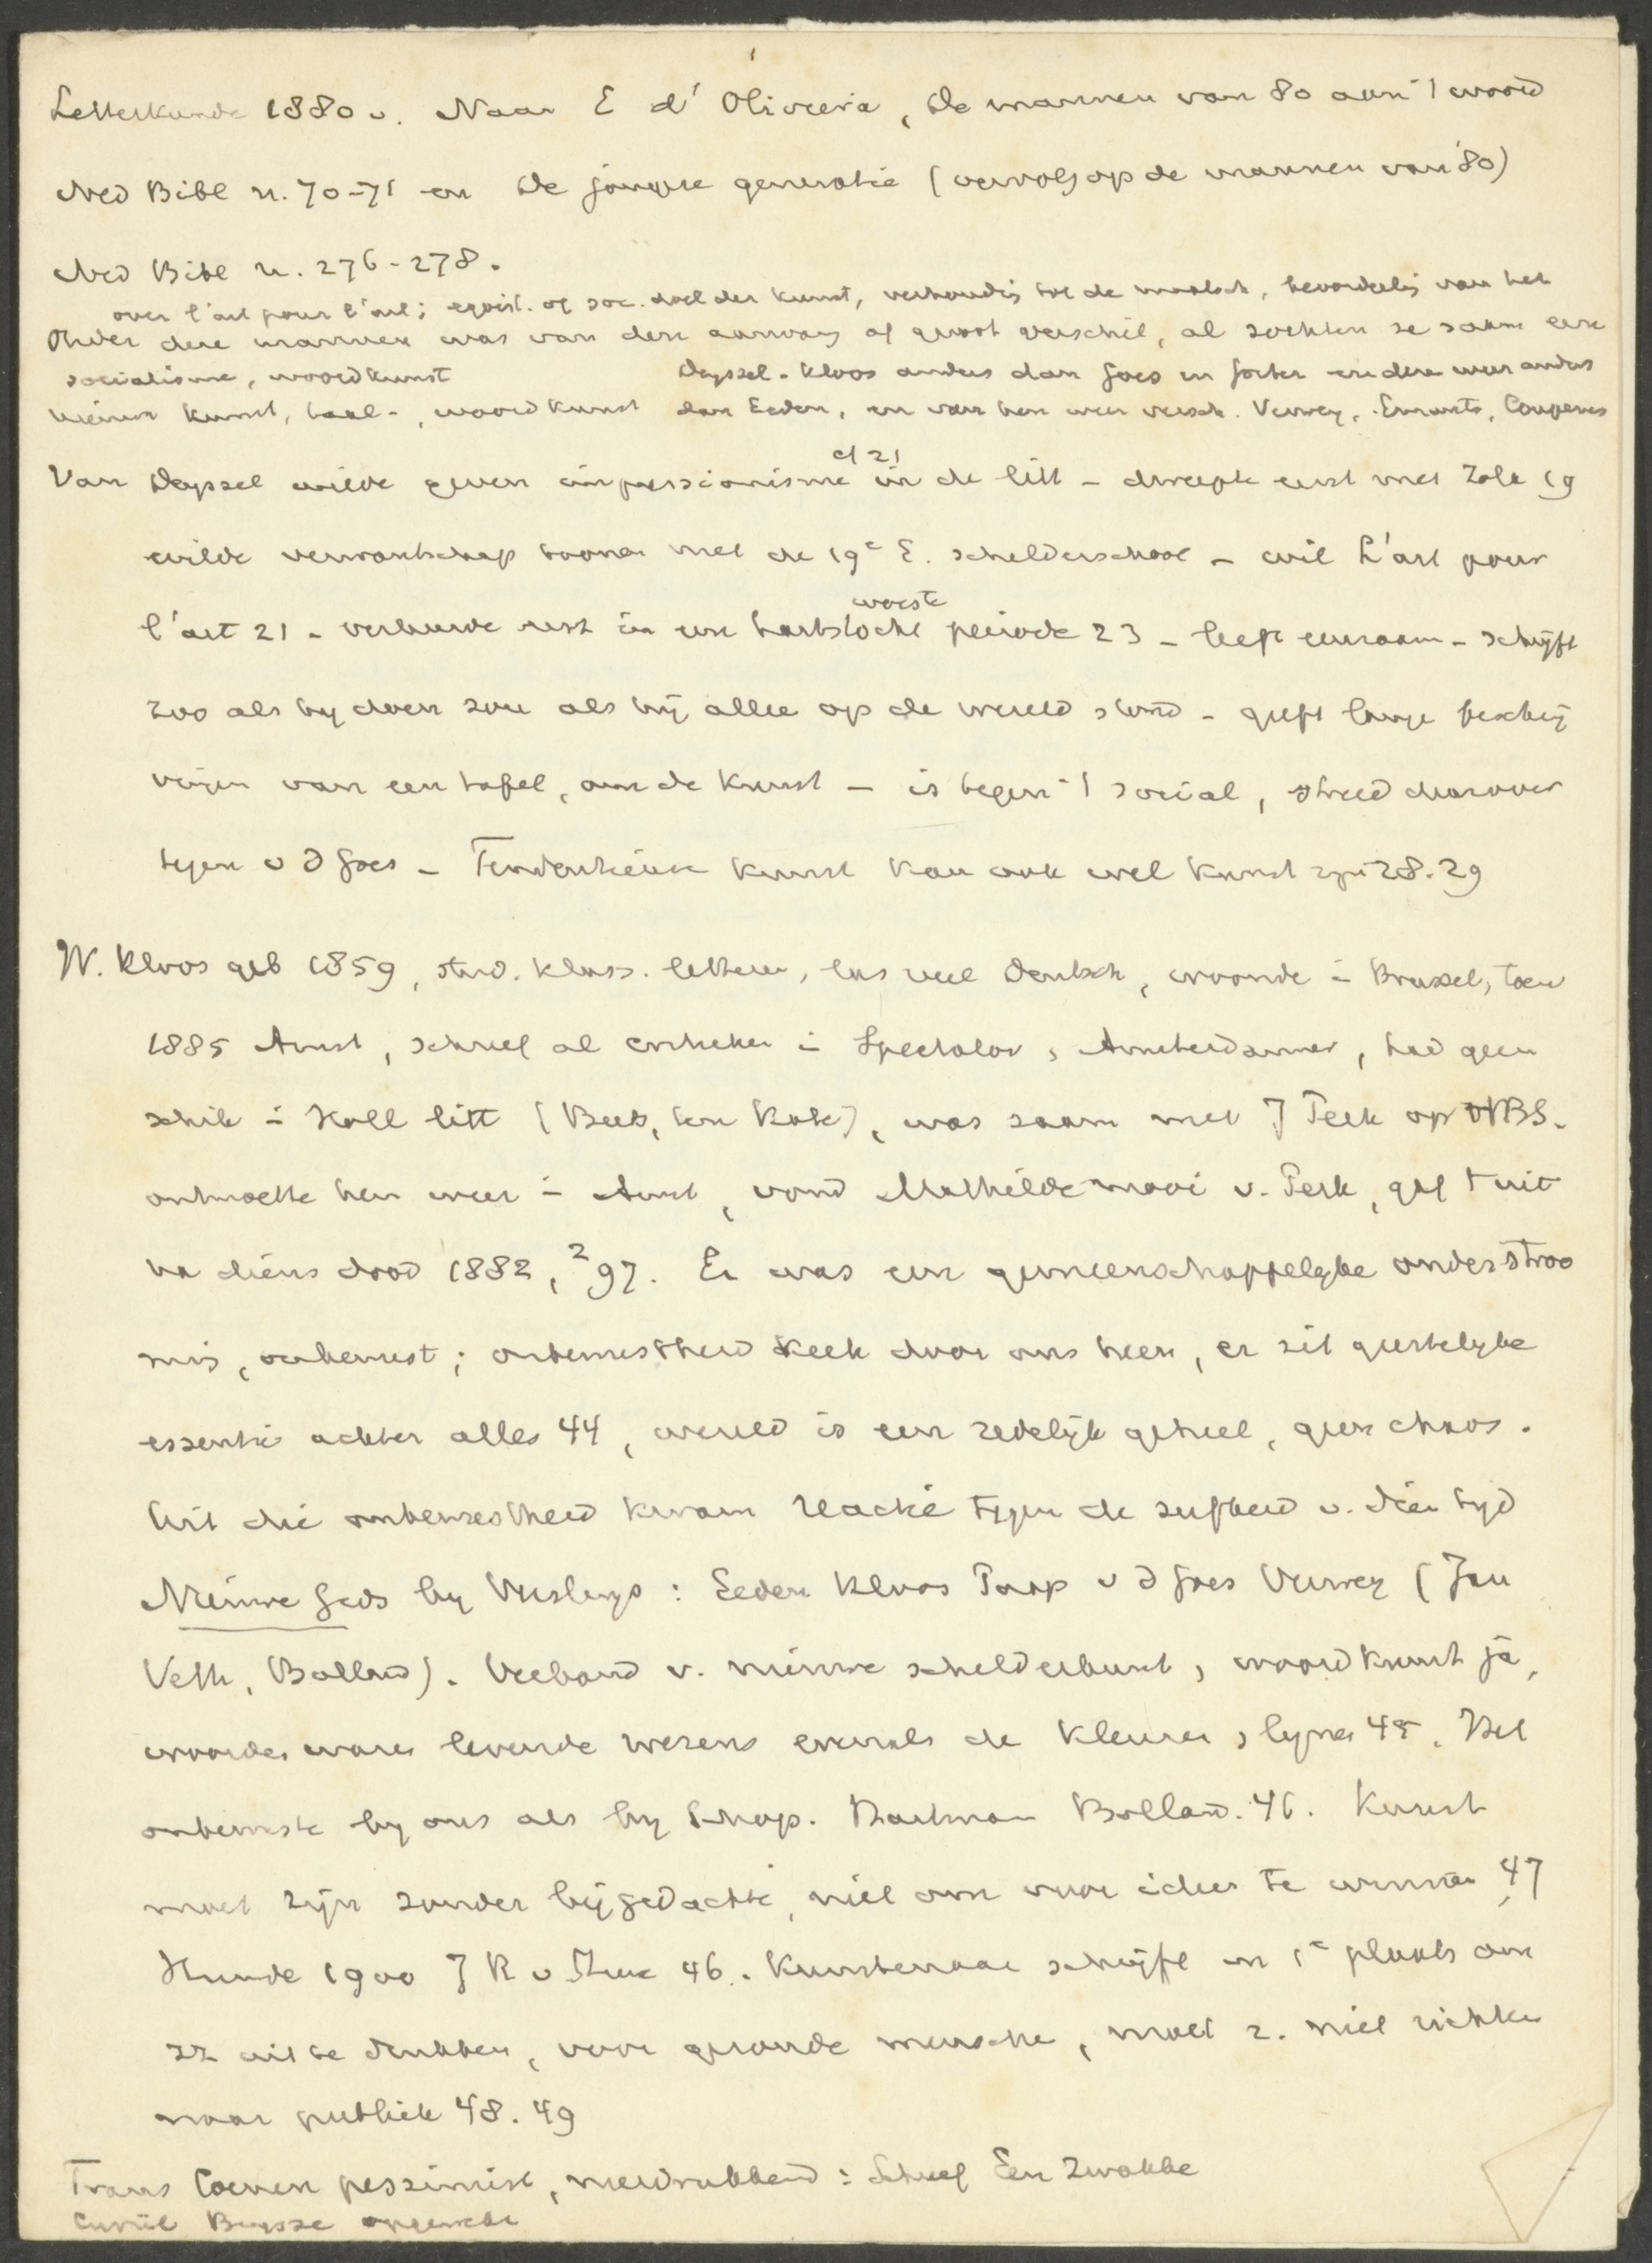 Letterkunde 1880 v. Naar E d'Oliveira, De mannen van 80 aan 't woord
Ned Bibl n. 70-71 en De jongere generatie (vervolg op de mannen van '80)
Ned Bibl n. 276-278.
over l'art pour l'art; egoist. of soc. doel der kunst, verhoudig tot de maatsch, bevordelig van het
Onder deze mannen was van den aanvang af groot verschil, al zochten ze saam een
socialisme, woordkunst
Deyssel - Kloos anders dan Goes en Gorter en deze weer anders
nieuwe kunst, taal-, woordkunst dan Eeden, en van hen weer versch. Verwey, Emants, Couperus
cf 21
Van Deyssel wilde geven impressionisme in de litt - dweepte eerst met Zola 19
wilde verwantschap toonen met de 19e E. schilderschool - wil L'art pour
woeste
l'art 21 - verbeurde rust in een hartstocht periode 23 - leeft eenzaam - schrijft
zoo als hij doen zou als hij allee op de wereld stond - geeft lange beschrij
vingen van een tafel, om de kunst - is tegen 't social, streed daarover
tegen v d Goes - Tendentieuse kunst kan ook wel kunst zijn 28.29
W. Kloos geb 1859, stud. klass. letteren, las veel Deutsch, woonde i Brussel, toen
1885 Amst, schreef al critieken i Spectator, Amsterdammer, had geen
schik i Holl litt (Beets, ten Kate), was saam met J Perk op HBS.
ontmoette hen weer i Amst, vond Mathilde mooi v. Perk, gaf t uit
na diens dood 1882, 2 97. Er was een gemeenschappelyke onderstroo
mig, onbewust; onbewustheid keek door ons heen, er zit geestelyke
essentie achter alles 44, wereld is een redelijk geheel, geen chaos.
Uit die onbewustheid kwam reactie tegen de sufheid v. dien tyd
Nieuwe Gids by Versluys: Eeden Kloos Paap v d Goes Verwey (Jan
Veth, Bolland). Verband v. nieuwe schilderkunst, woordkunst ja,
woorden waren levende wezens evenals de kleuren, lynen 45. Het
onbewuste by ons als by Schop. Hartman Bolland. 46. Kunst
moet zijn zonder bijgedachte, niet om voor ideen te winnen 47
Hunde 1900 J K v Hue 46. Kunstenaar schrijft in 1e plaats om
zz uit te drukken, voor gezonde mensche, moet z. niet richte
naar publiek 48.49
Frans Coenen pessimist, neerdrukkend: Schreef Een Zwakke
Cyriel Buysse opgewekt